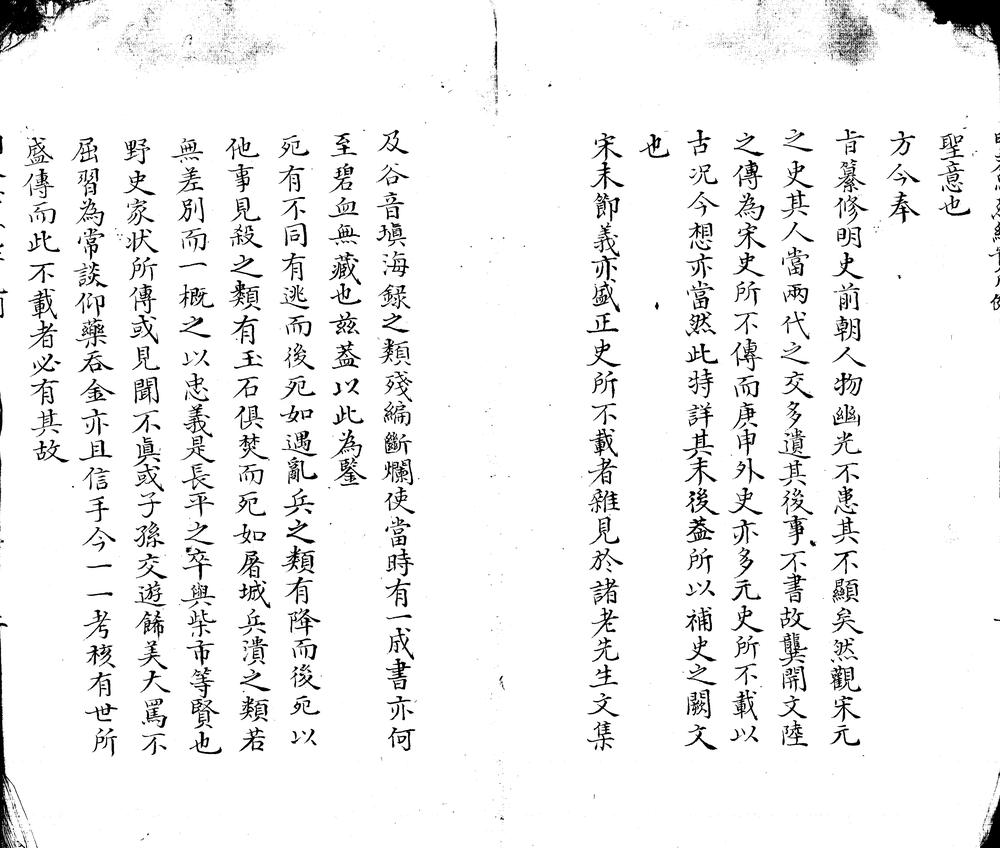 聖意也
方今奉
旨纂修明史前朝人物幽光不患其不顯矣然觀宋元
之史其人當兩代之交多遺其後事不書故龔開文陸
之傳為宋史所不傳而庚申外史亦多元史所不載以
古况今想亦當然此特詳其末後葢所以補史之闕文
也
宋末節義亦盛正史所不載者雜見於諸老先生文集
及谷音塡海録之類殘編斷爛使當時有一成書亦何
至碧血無藏也兹葢以此為鑒
死有不同有逃而後死如遇亂兵之類有降而後死以
他事見殺之類有玉石俱焚而死如屠城兵潰之類若
無差別而一概之以忠義是長平之卒與柴市等賢也
野史家状所傳或見聞不眞或子孫交遊餙美大罵不
屈習為常談仰藥吞金亦且信手今一一考核有世所
盛傳而此不載者必有其故